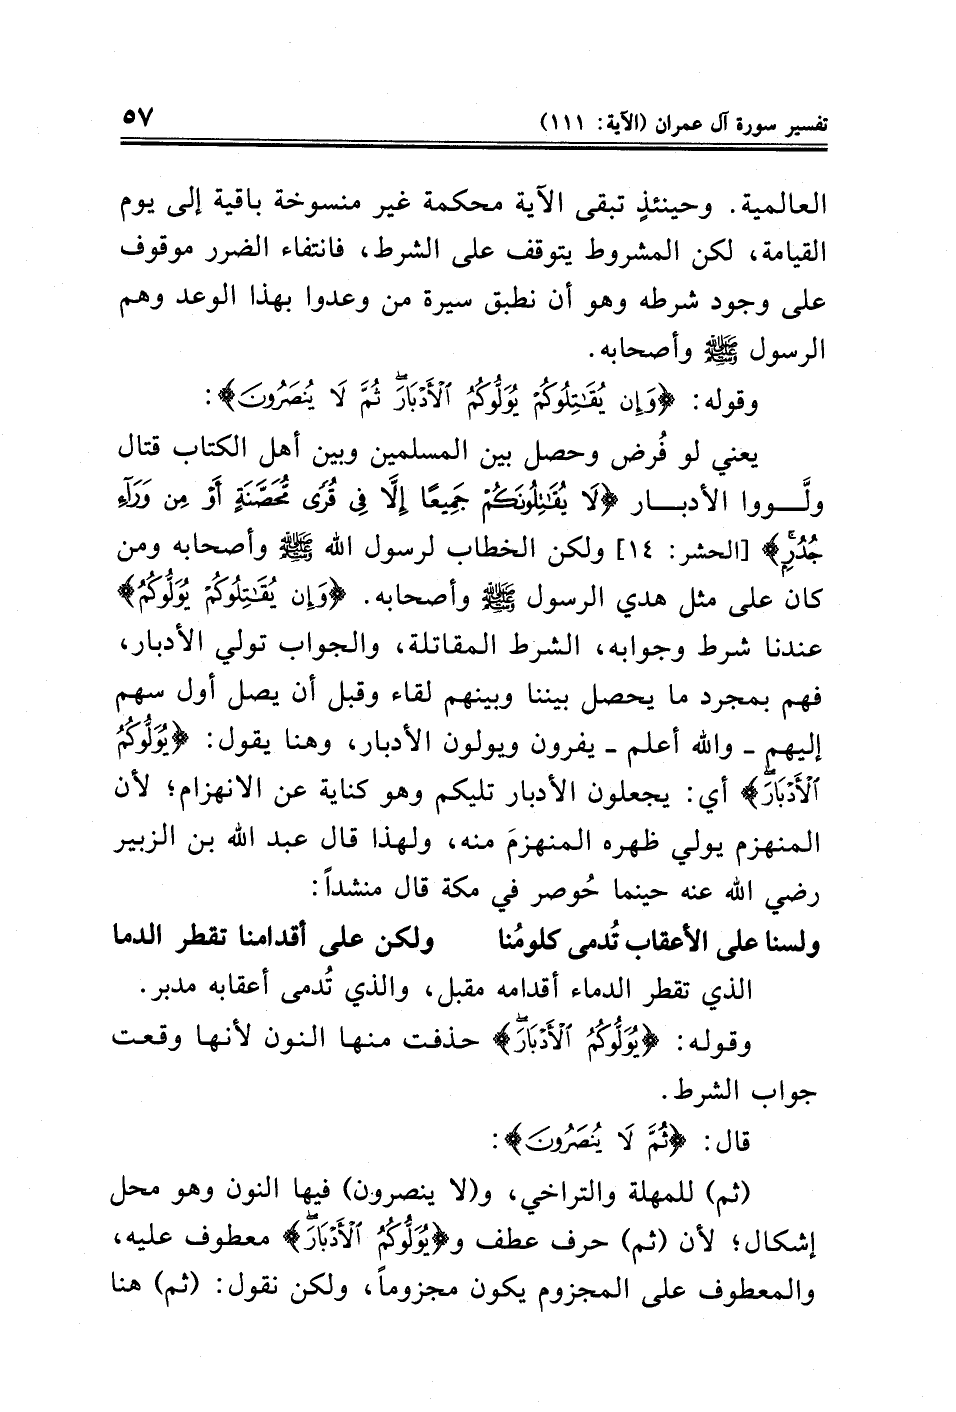 تفسير سورة آل عمران (الآية: ١١١) ٥٧
العالمية. وحينئذٍ تبقى الآية محكمة غير منسوخة باقية إلى يوم
القيامة، لكن المشروط يتوقف على الشرط، فانتفاء الضرر موقوف
على وجود شرطه وهو أن نطبق سيرة من وعدوا بهذا الوعد وهم
الرسول ﷺ وأصحابه.
وقوله: ﴿وَإِن يُقَٰتِلُوكُمْ يُوَلُّوكُمُ ٱلْأَدْبَارَۖ ثُمَّ لَا يُنصَرُونَ﴾:
يعني لو فُرض وحصل بين المسلمين وبين أهل الكتاب قتال
ولَّـــووا الأدبـــار ﴿لَا يُقَٰتِلُونَكُمْ جَمِيعًا إِلَّا فِى قُرًى مُّحَصَّنَةٍ أَوْ مِن وَرَآءِ
جُدُرٍۚ﴾ [الحشر: ١٤] ولكن الخطاب لرسول الله ﷺ وأصحابه ومن
كان على مثل هدي الرسول ﷺ وأصحابه. ﴿وَإِن يُقَٰتِلُوكُمْ يُوَلُّوكُمُ﴾
عندنا شرط وجوابه، الشرط المقاتلة، والجواب تولي الأدبار،
فهم بمجرد ما يحصل بيننا وبينهم لقاء وقبل أن يصل أول سهم
إليهم ـ والله أعلم ـ يفرون ويولون الأدبار، وهنا يقول: ﴿يُوَلُّوكُمُ
ٱلْأَدْبَارَۖ﴾ أي: يجعلون الأدبار تليكم وهو كناية عن الانهزام؛ لأن
المنهزم يولي ظهره المنهزمَ منه، ولهذا قال عبد الله بن الزبير
رضي الله عنه حينما حُوصر في مكة قال منشداً:
ولسنا على الأعقاب تُدمى كلومُنا ولكن على أقدامنا تقطر الدما
الذي تقطر الدماء أقدامه مقبل، والذي تُدمى أعقابه مدبر.
وقوله: ﴿يُوَلُّوكُمُ ٱلْأَدْبَارَۖ﴾ حذفت منها النون لأنها وقعت
جواب الشرط.
قال: ﴿ثُمَّ لَا يُنصَرُونَ﴾:
(ثم) للمهلة والتراخي، و(لا ينصرون) فيها النون وهو محل
إشكال؛ لأن (ثم) حرف عطف و﴿يُوَلُّوكُمُ ٱلْأَدْبَارَۖ﴾ معطوف عليه،
والمعطوف على المجزوم يكون مجزوماً، ولكن نقول: (ثم) هنا